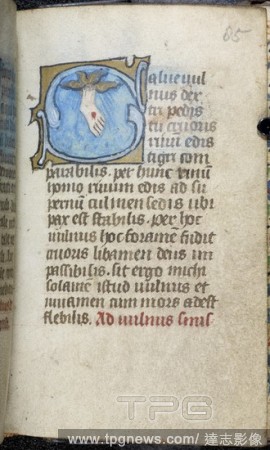 85
Salue uul
nus dex
tri pedis
tu cruoris
riuū edis
tigri com
parabilis. per hunc riuuū
homo riuum edis ad su
pernū culmen sedis ubi
pax est stabilis. per hoc
uulnus hoc foramē fudit
cruoris libamen deus im
passibilis. sit ergo michi
solamē istud uulnus et
iuuamen cum mors adest
flebilis. Ad uulnus sinis
TPG
www.tpgnews.com / 達志影像